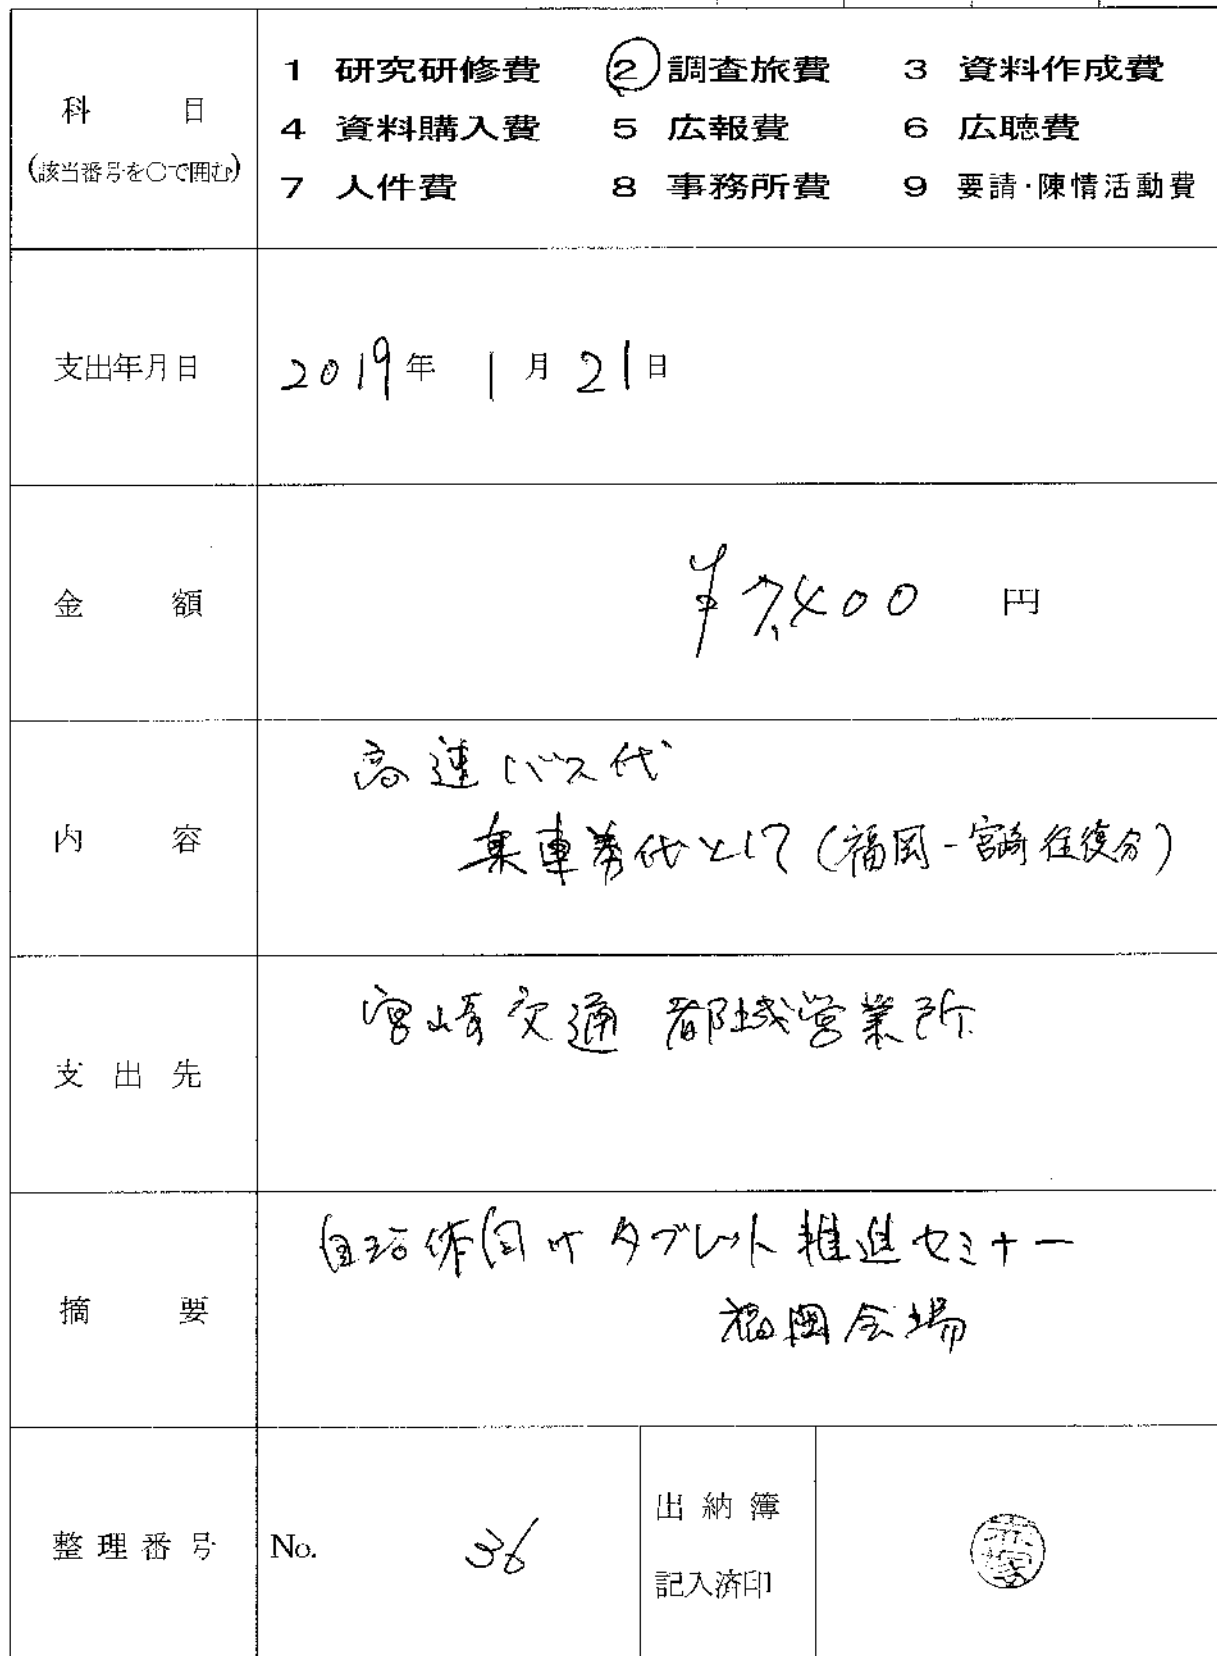 科 目
(該当番号を○で囲む)
1 研究研修費 2 調査旅費 3 資料作成費
4 資料購入費 5 広報費 6 広聴費
7 人件費 8 事務所費 9 要請・陳情活動費
支出年月日 2019年 1月21日
金 額 ¥7,400 円
内 容
高速バス代
乗車券代として(福岡-宮崎往復分)
支 出 先
宮崎交通 都城営業所
摘 要
自治体向けタブレット推進セミナー
福岡会場
整 理 番 号 No. 36
出 納 簿
記入済印